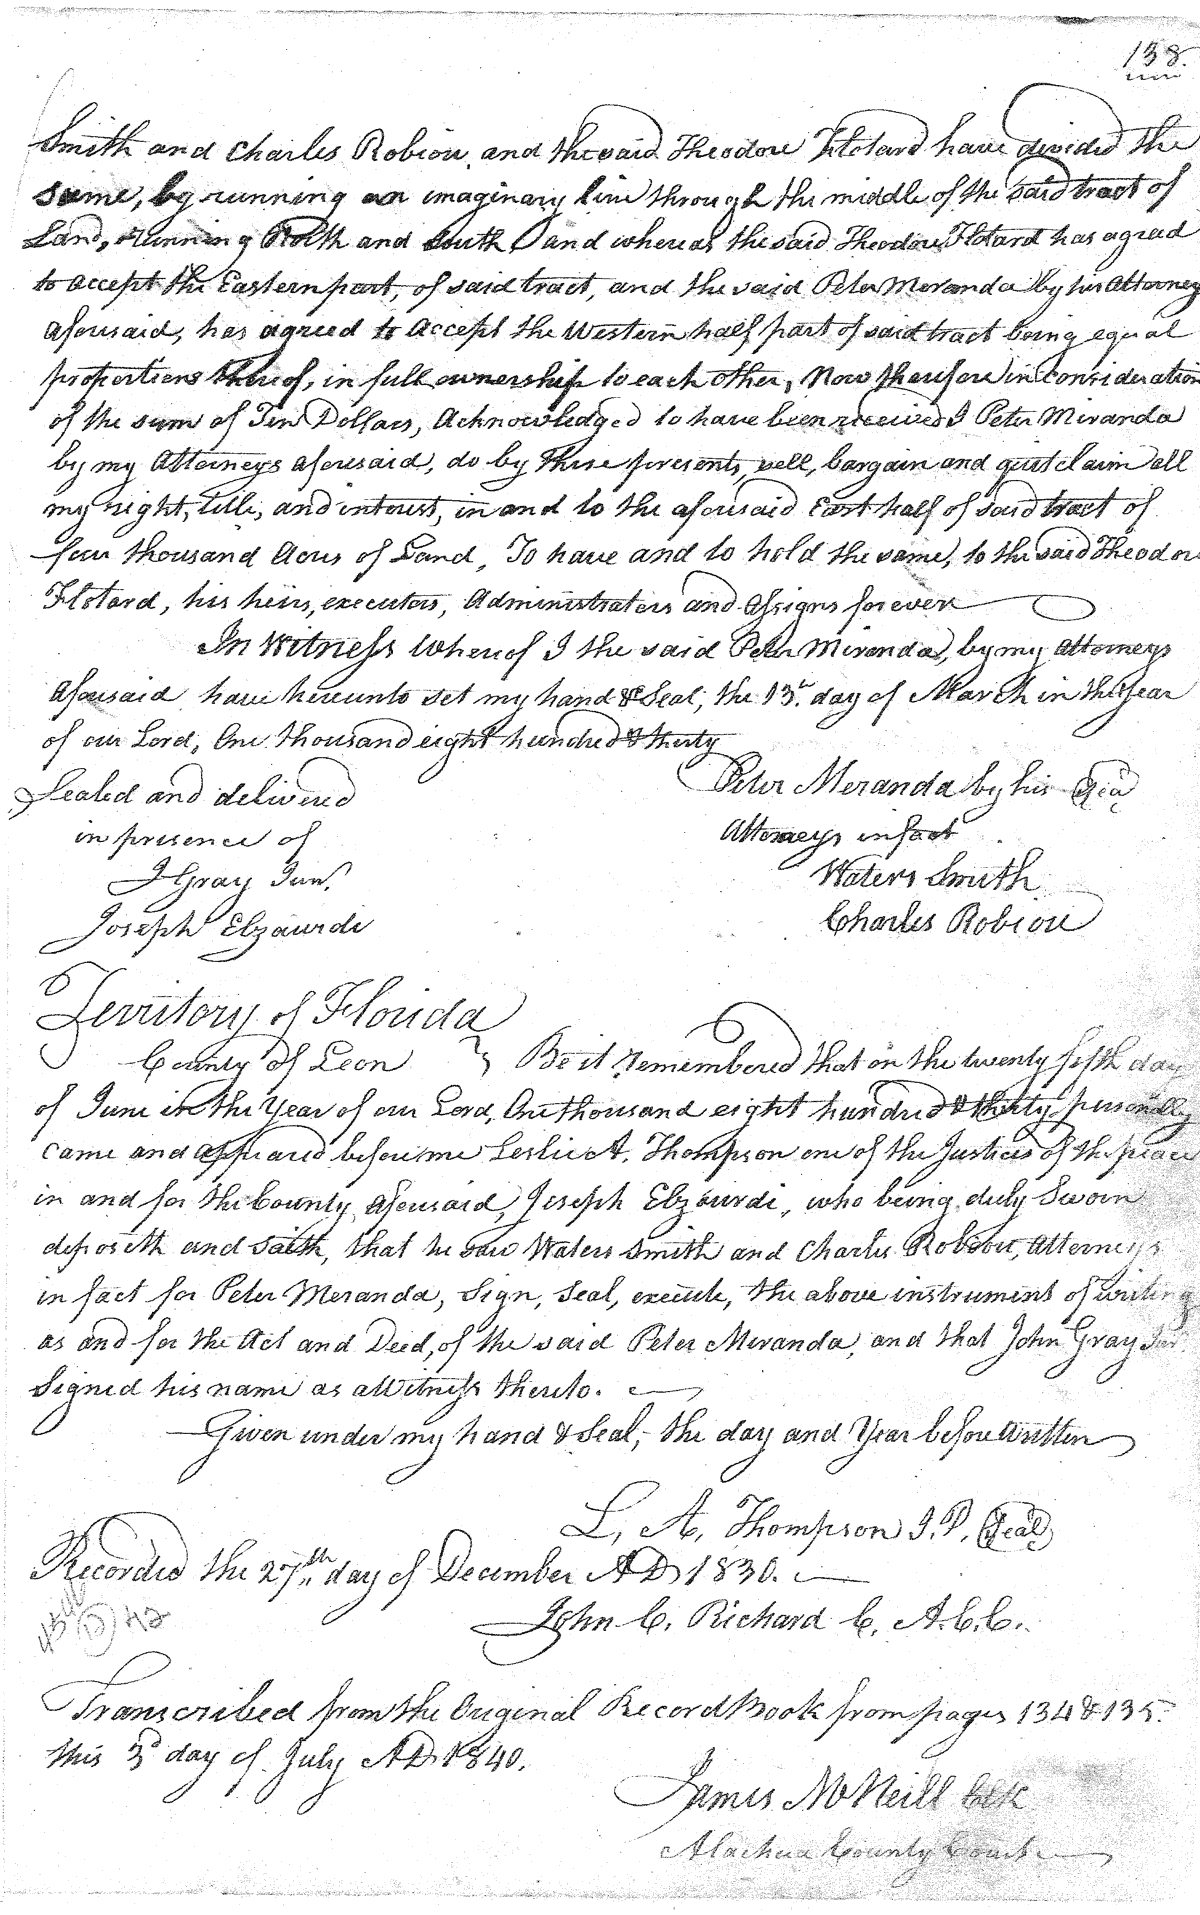 138.
Smith and Charles Robiou, and the said Theodore Flotard have divided the
same, by running an imaginary line through the middle of the said tract of
Land, running North and South, and whereas the said Theodore Flotard has agreed
to accept the Eastern part, of said tract, and the said Peter Meranda by his Attorneys
aforesaid, has agreed to accept the Western half part of said tract being equal
proportions thereof, in full ownership to each other, Now therefore in Consideration
of the sum of Ten Dollars, Acknowledged to have been received I Peter Miranda
by my Attorneys aforesaid, do by these presents, sell, bargain and quit claim all
my right, title, and interest, in and to the aforesaid East half of said tract of
four thousand Acres of Land, To have and to hold the same, to the said Theodore
Flotard, his heirs, executors, Administrators and Assigns forever
In Witness whereof I the said Peter Miranda, by my Attorneys
aforesaid have hereunto set my hand & Seal, the 13th day of March in the Year
of our Lord, One thousand eight hundred & thirty
Sealed and delivered
in presence of
J Gray Junr.
Joseph Elzaurdi
Peter Meranda by his Seal
Attorneys in fact
Waters Smith
Charles Robiou
Territory of Florida
County of Leon } Be it remembered that on the twenty fifth day
of June in the Year of our Lord, One thousand eight hundred & thirty personally
came and appeared before me Leslie A. Thompson one of the Justices of the peace
in and for the County aforesaid, Joseph Elzaurdi, who being duly Sworn
deposeth and saith, that he saw Waters Smith and Charles Robiou, Attorneys
in fact for Peter Meranda, Sign, Seal, execute, the above instrument of writing
as and for the Act and Deed, of the said Peter Meranda, and that John Gray Jur
Signed his name as a Witness thereto.
Given under my hand & Seal, the day and Year before written
L, A, Thompson J.P. Seal
Recorded the 27th day of December AD 1830.
John C. Richard C. A.C.C.
Transcribed from the Original Record Book from pages 134 & 135.
this 3d day of July AD 1840.
James McNeill Clk
Alachua County Court